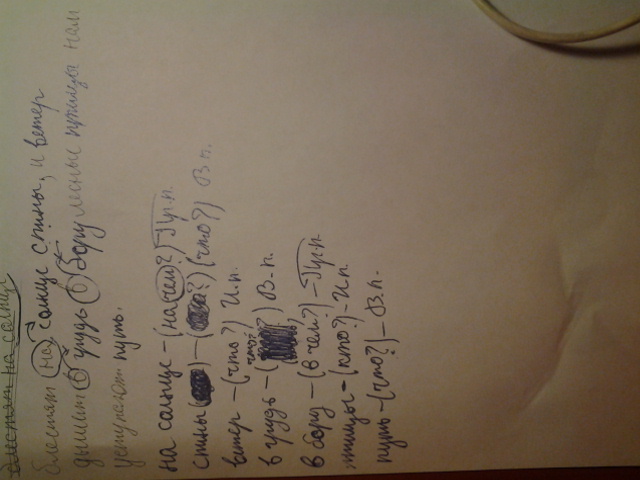 блестят на солнце
блестят на солнце спины, и ветер
дышит в грудь в бору лесные птицы нам
уступают путь.
на солнце – (на чём?) Пр.п.
спины – (что?) В.п.
ветер – (что?) И.п.
в грудь – (что?) В.п.
в бору – (в чём?) – Пр.п.
птицы – (что?) – И.п.
путь – (что?) – В.п.